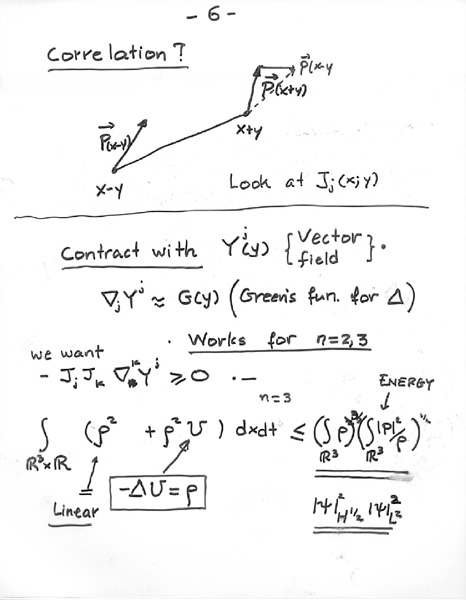 - 6 -
Correlation?
P⃗(x-y
P⃗(x+y)
P⃗(x-y)
x+y
x-y
Look at Jj(x;y)
Contract with Y^j(y) {Vector field}.
∇j Y^j ≈ G(y) (Green's fun. for Δ)
· Works for n=2,3
we want
- Jj Jk ∇^k Y^j ⩾ 0 · —
n=3
ENERGY
∫ (ρ² + ρ² U) dxdt ≤ (∫ρ)^3/2 (∫|P|²/ρ)^1/2
ℝ³×ℝ ℝ³ ℝ³
Linear
-ΔU = ρ
|ψ|²_H^1/2 |ψ|²_L²